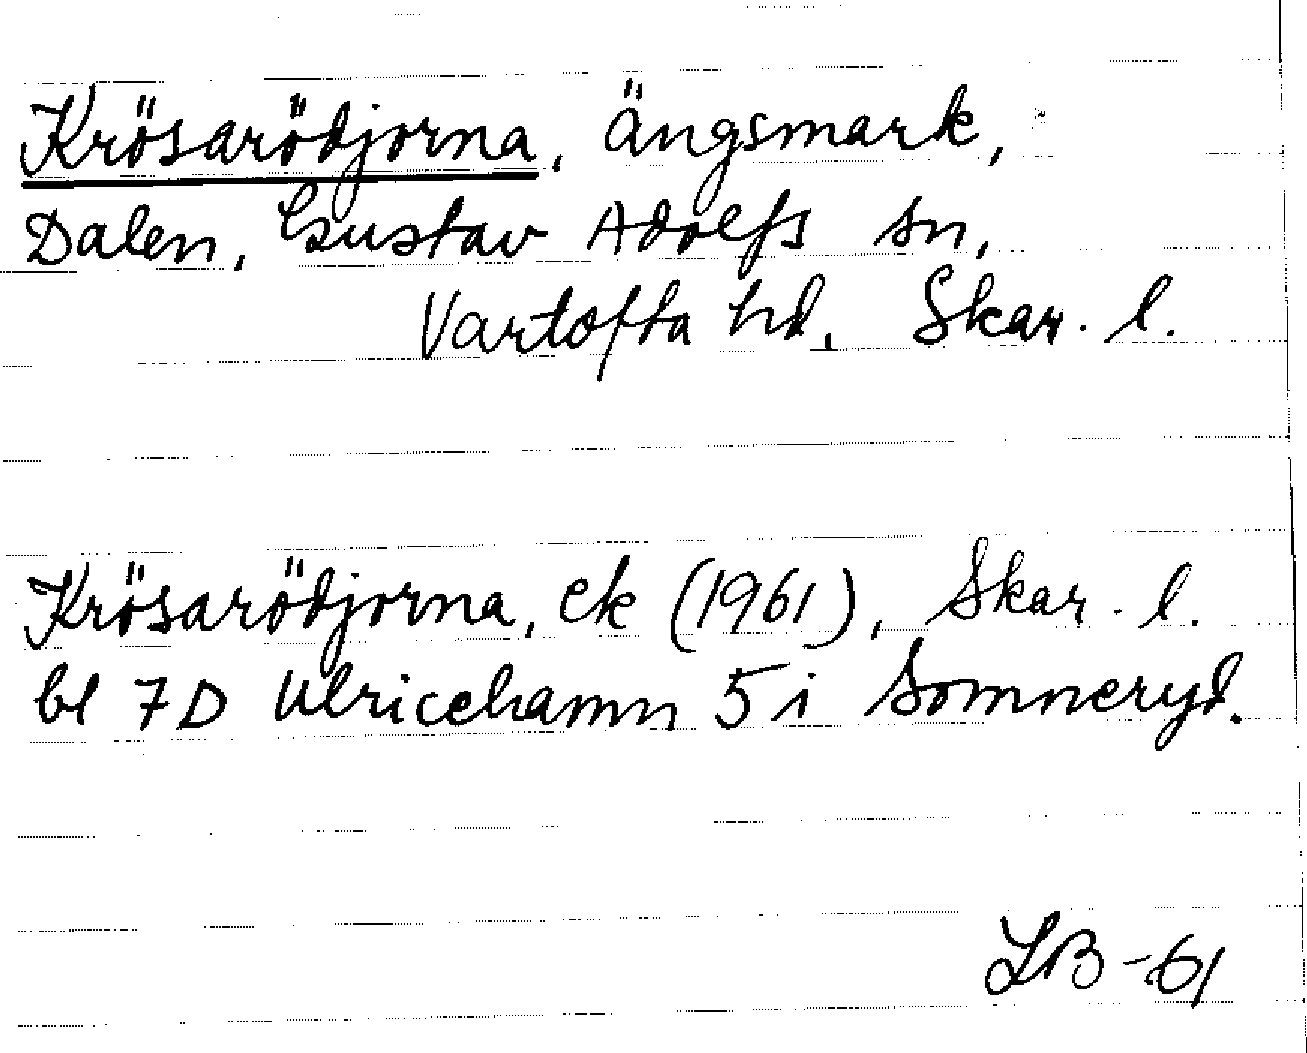 Krösarödjorna, ängsmark,
Dalen, Gustav Adolfs sn,
Vartofta hd, Skar. l.
Krösarödjorna, ek (1961), Skar. l.
bl 7D Ulricehamn 5 i Somneryd.
LB-61